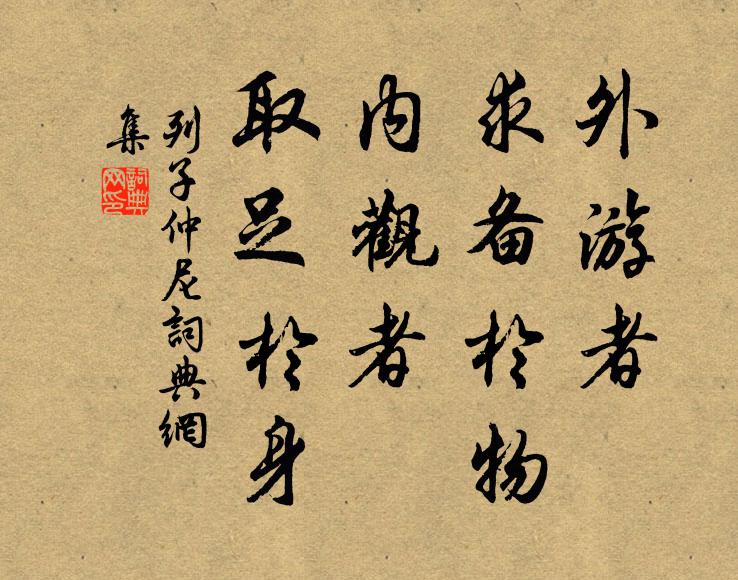 外游者
求备於物
内觀者
取足於身
列子仲尼詞典網
集
詞典
网印